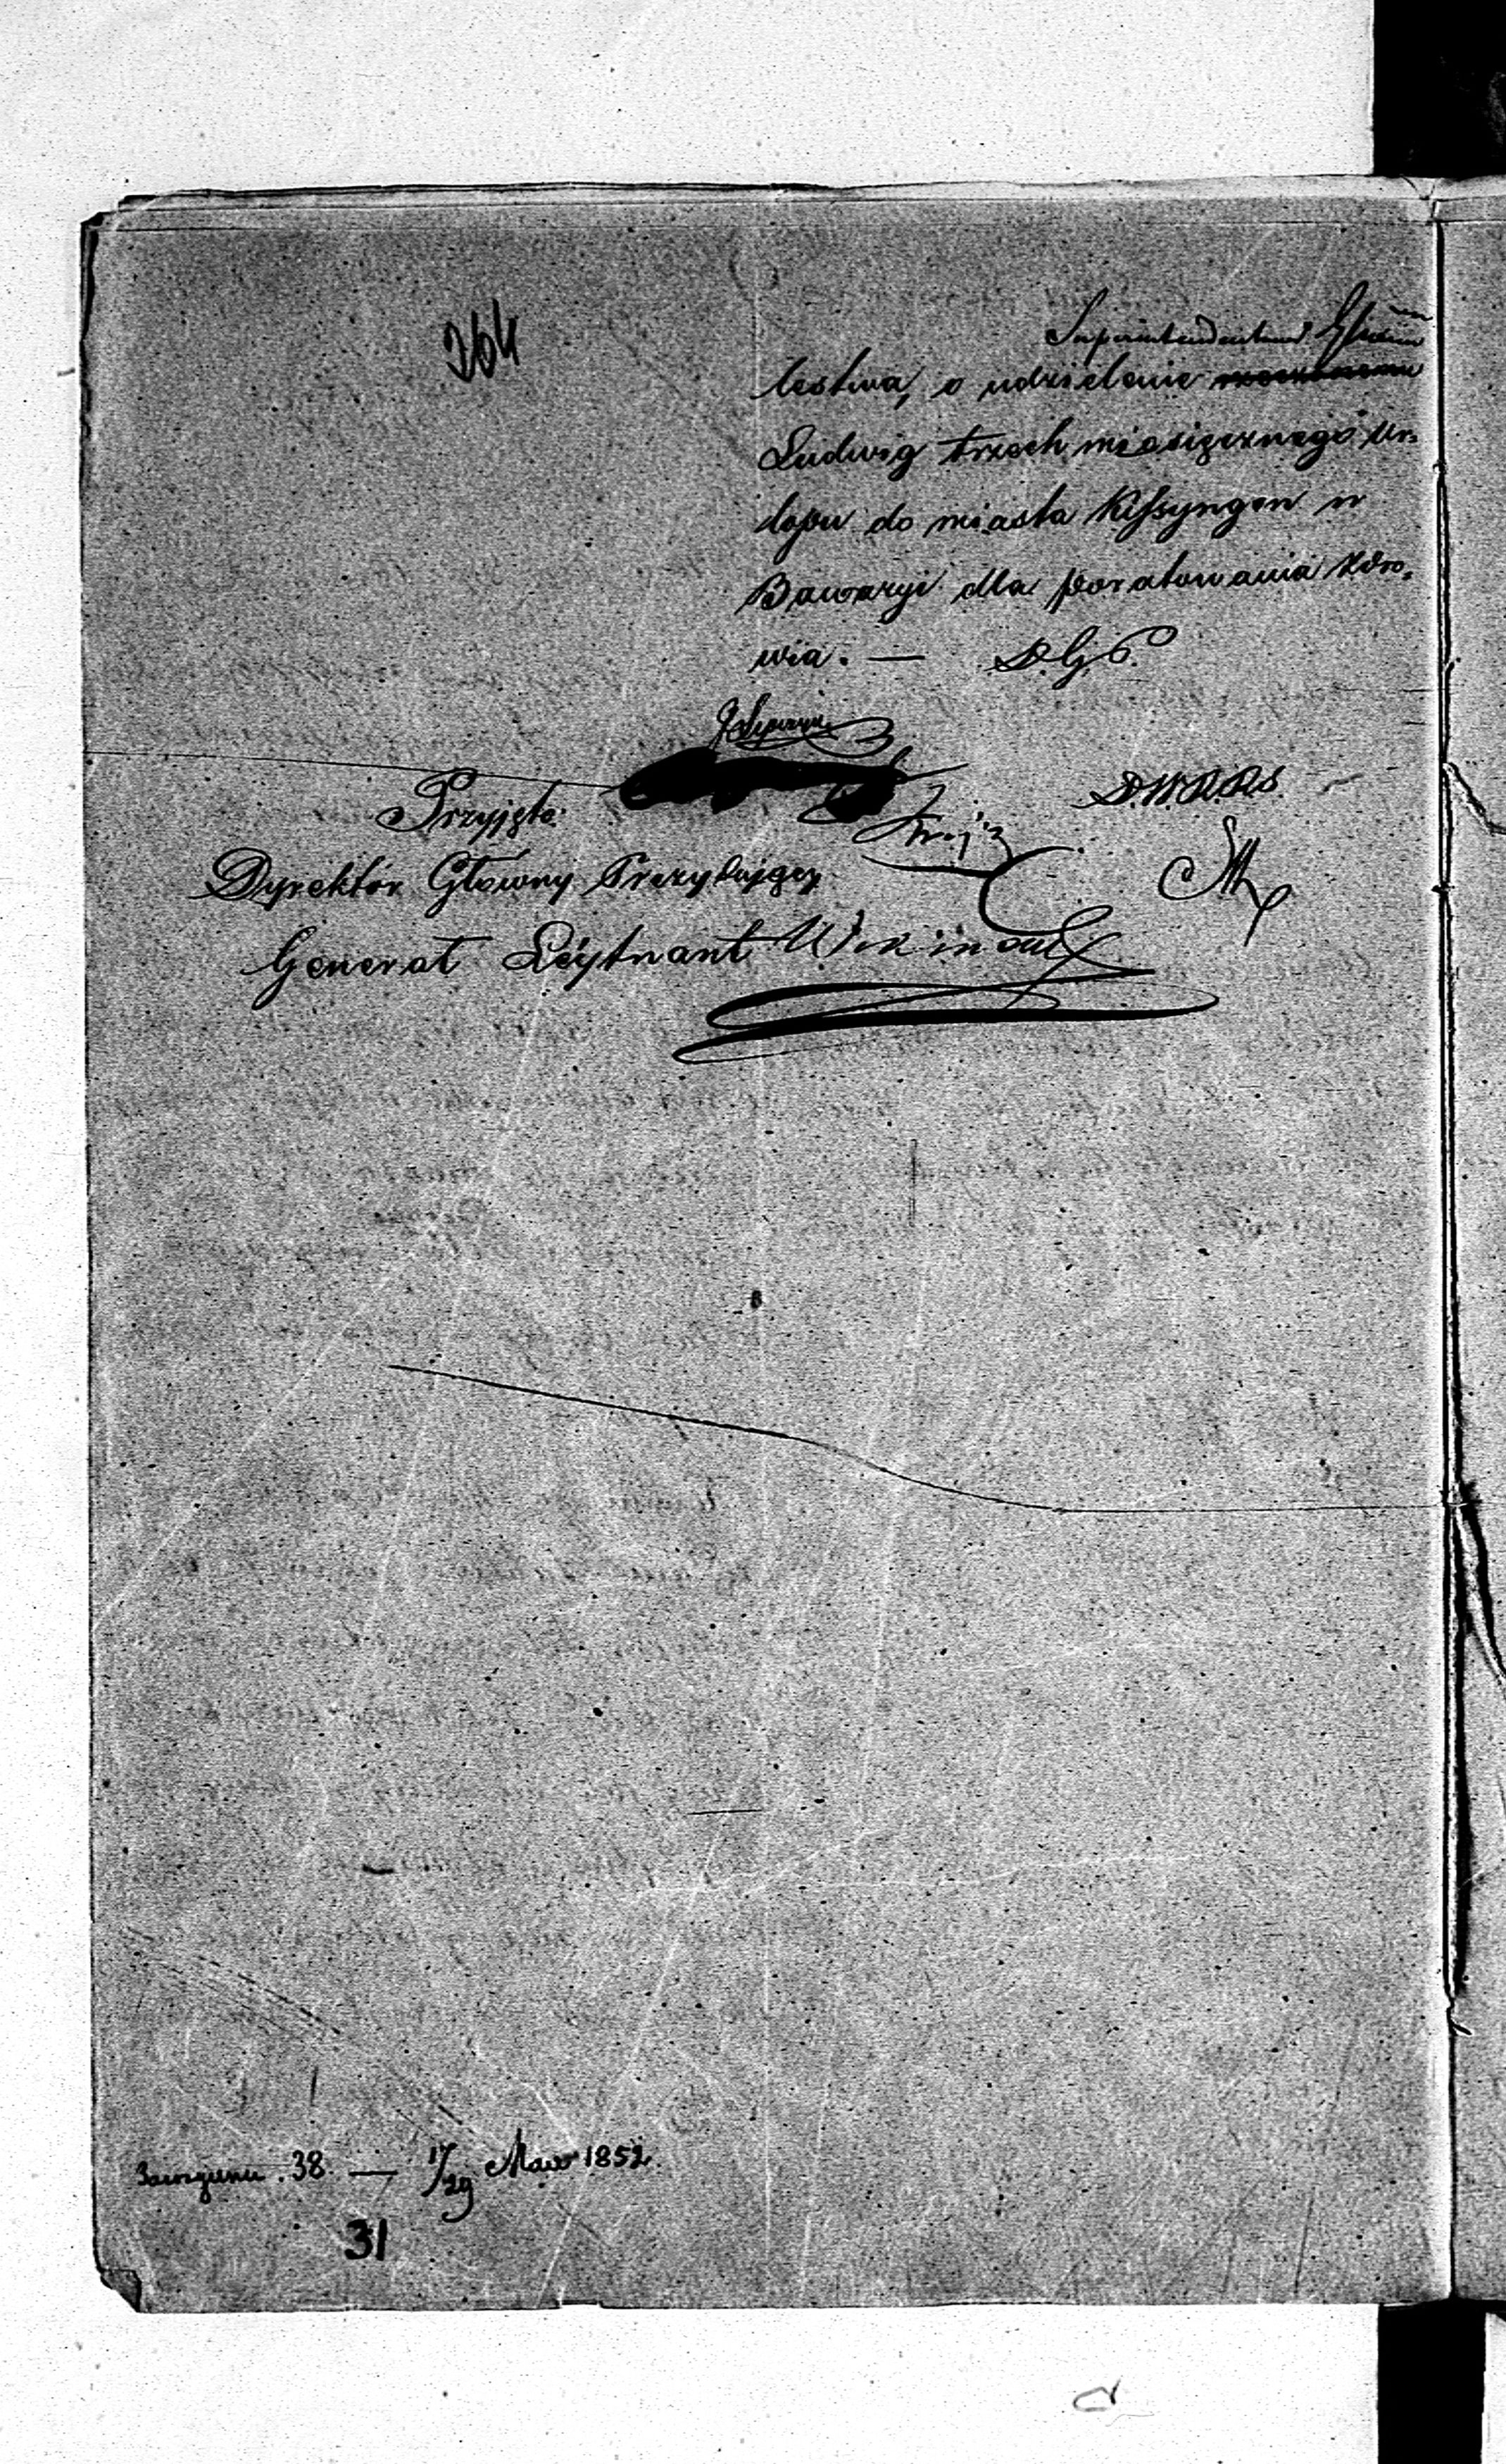 264
Superintendentowi
lestwa, o udzielenie
Ludwig trzech miesięcznego Ur„
lopu do miasta Kissyngen w
Bawaryi dla poratowania zdro„
wia. — D.G.P.
Przyjęte:
Dyrektor Główny Prezydujący
Generał Lejtnant Wikinski
38. — 17/29 Maja 1852.
31